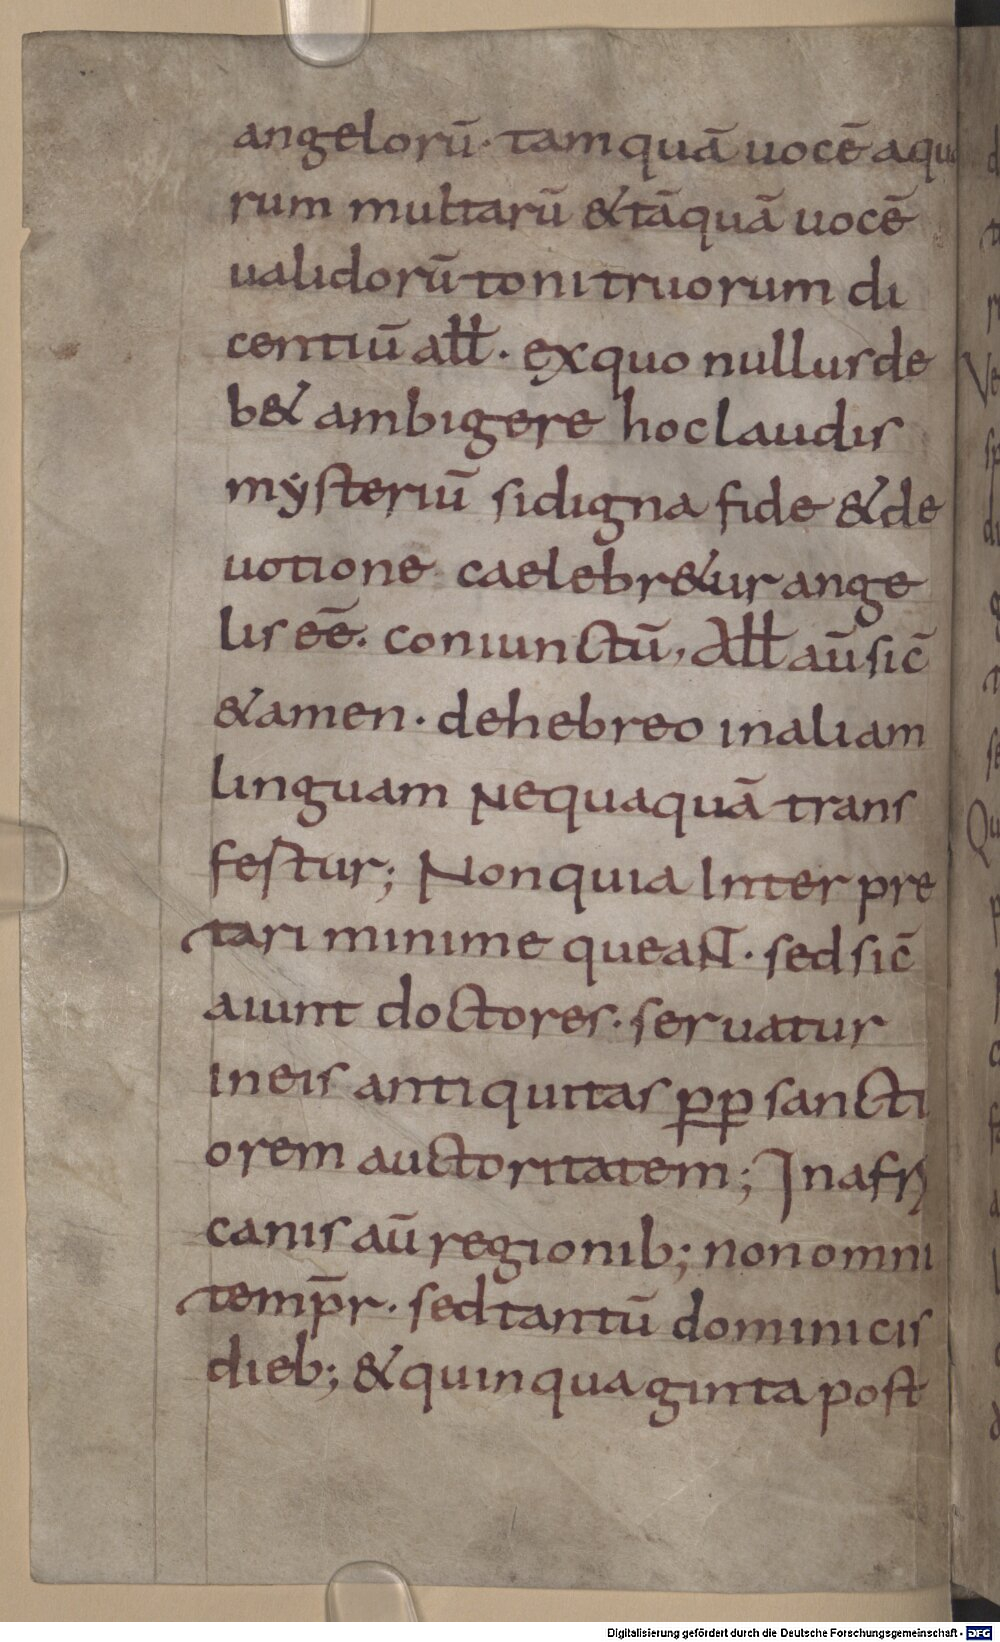 angelorū· tamquā uocē aqua
rum multarū &tāquā uocē
ualidorū tonitruorum di
centiū all̄· exquo nullus de
b& ambigere hoc laudis
mẏsteriū si digna fide & de
uotione caelebr&ur ange
lis eē· coniunctū, All̄ aū sic̄
& amen· de hebreo in aliam
linguam Nequaquā trans
festur; Non quia Inter pre
tari minime queaNT· sed sic̄
aiunt doctores· seruatur
in eis antiquitas ꝓꝑ sancti
orem auctoritatem; In afri
canis aū regionib; non omni
temp̄r· sed tantū dominicis
dieb; & quinquaginta post
Digitalisierung gefördert durch die Deutsche Forschungsgemeinschaft - DFG